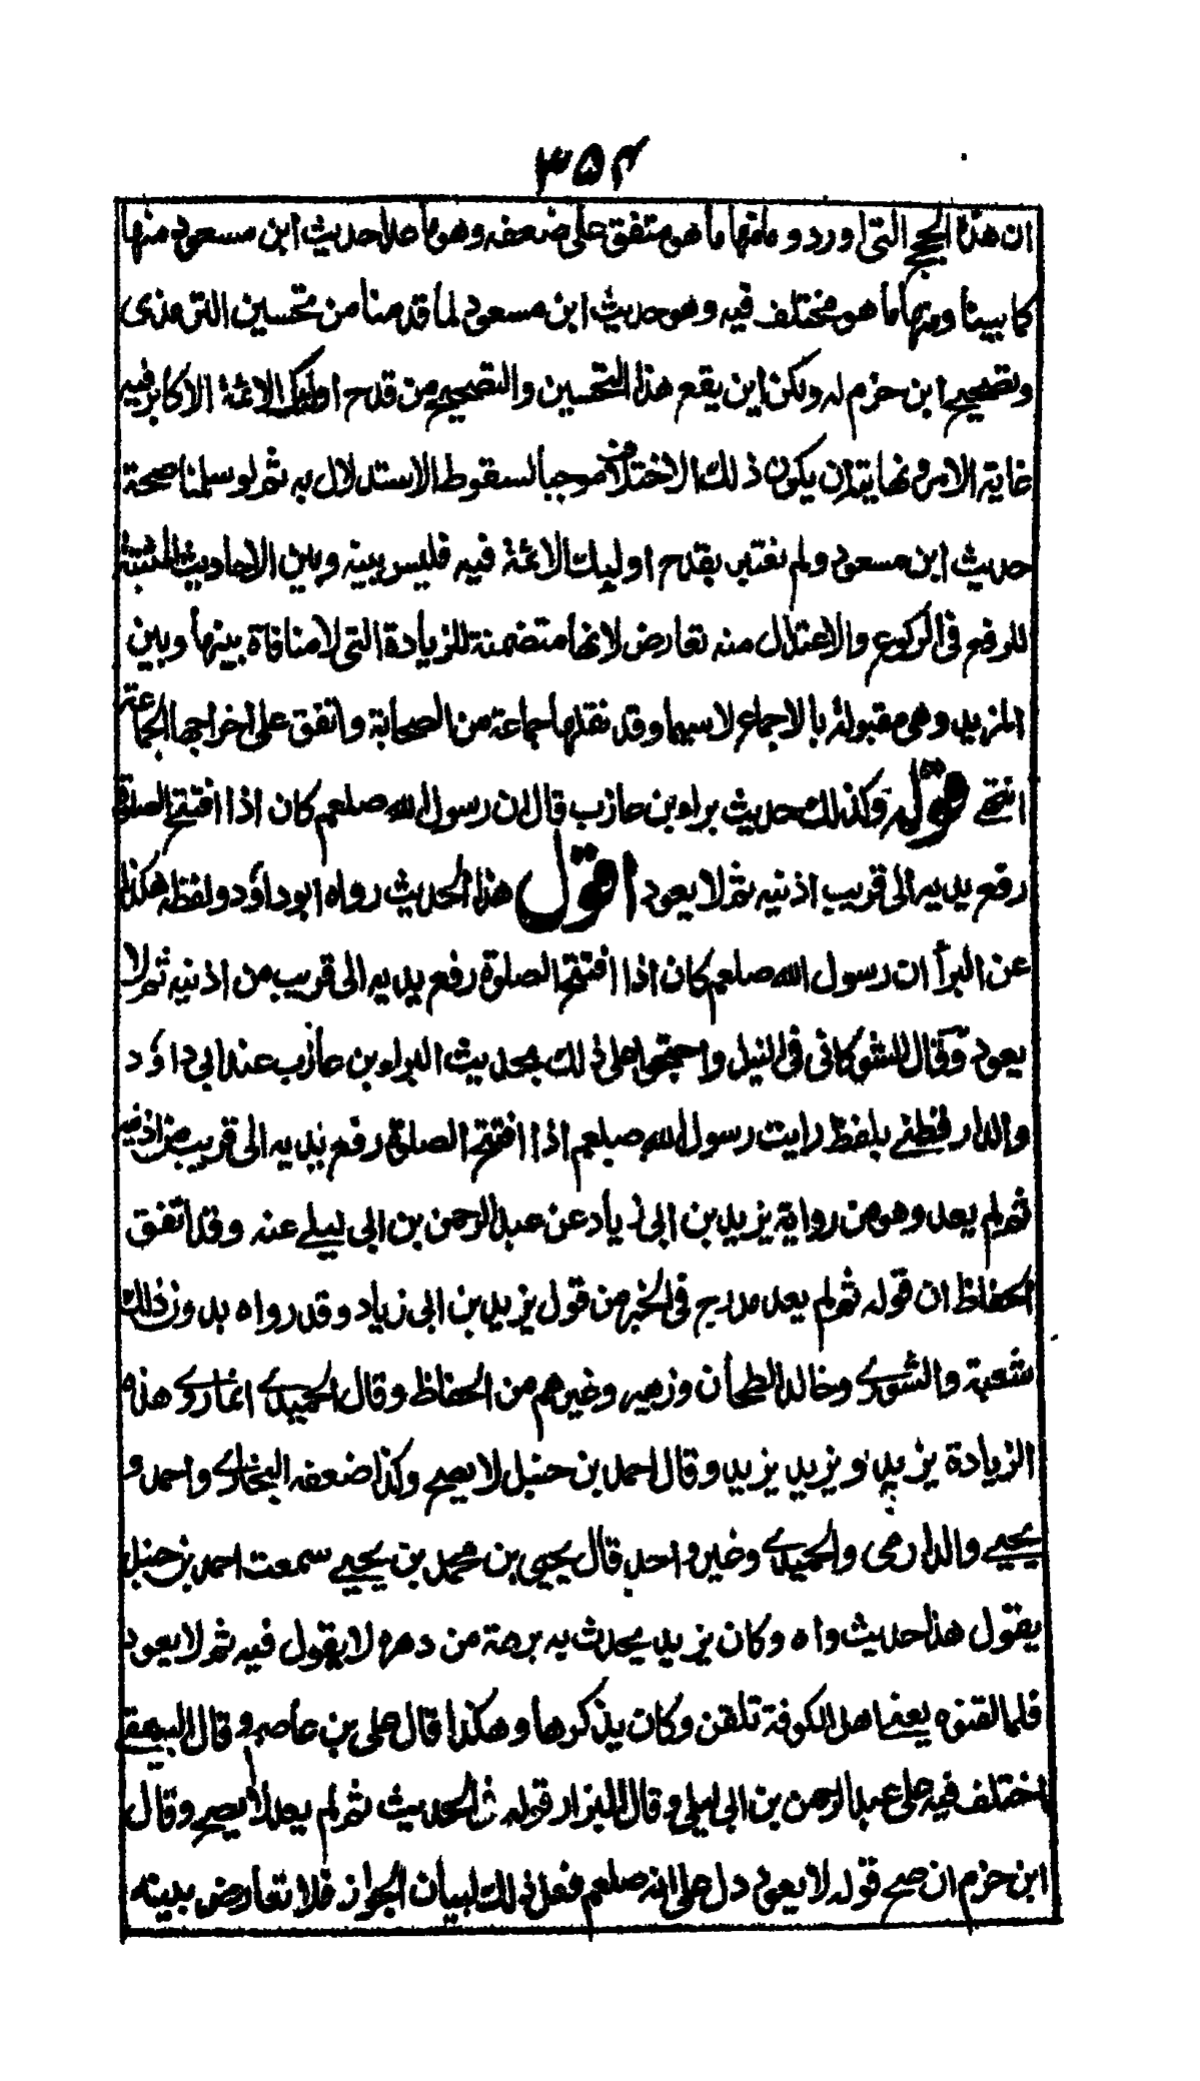 ۳۵۴
ان هذه الحجج التي اوردوها منها ما هو متفق على ضعفه وهو ما عدا حديث ابن مسعود منها
كما بينا ومنها ما هو مختلف فيه وهو حديث ابن مسعود لما قدمنا من تحسين الترمذى
وتصحيح ابن حزم له ولكن اين يقع هذا التحسين والتصحيح من قدح اولئك الائمة الاكابر فيه
غاية الامر ونهايته ان يكون ذلك الاختلاف موجبا لسقوط الاستدلال به ثم لو سلمنا صحة
حديث ابن مسعود ولم نعتبر بقدح اوليك الائمة فيه فليس بينه وبين الاحاديث المثبتة
للرفع فى الركوع والاعتدال منه تعارض لانها متضمنة للزيادة التى لا منافاة بينها وبين
المزيد وهى مقبولة بالاجماع لاسيما وقد نقلها جماعة من الصحابة واتفق على اخراجها الجماعة
انتهے قولہ وكذلك حديث براء بن عازب قال ان رسول الله صلعم كان اذا افتتح الصلوة
رفع يديه الى قريب اذنيه ثم لا يعود اقول هذا الحديث رواه ابو داؤد ولفظه هكذا
عن البرأ ان رسول الله صلعم كان اذا افتتح الصلوة رفع يديه الى قريب من اذنيه ثم لا
يعود وقال الشوكانى فى النيل واحتجوا على ذلك بحديث البراء بن عازب عند ابى داؤد
والدارقطنے بلفظ رايت رسول الله صلعم اذا افتتح الصلوة رفع يديه الى قريب من اذنيه
ثم لم يعد وهو من رواية يزيد بن ابى زياد عن عبد الرحمن بن ابى ليلے عنه وقد اتفق
الحفاظ ان قوله ثم لم يعد مدرج فى الخبر من قول يزيد بن ابى زياد وقد رواه بدون ذلك
شعبة والثورے وخالد الطحان وزهير وغيرهم من الحفاظ وقال الحميدے انما روے هذه
الزيادة يزيد ويزيد يزيد وقال احمد بن حنبل لا يصح وكذا ضعفه البخارے واحمد و
يحيے والدارمى والحميدے وغير واحد قال يحيى بن محمد بن يحيے سمعت احمد بن حنبل
يقول هذا حديث واه وكان يزيد يحدث به برهة من دهره لا يقول فيه ثم لا يعود
فلما لقنوه يعنے اهل الكوفة تلقن وكان يذكرها وهكذا قال على بن عاصم وقال البيهقے
اختلف فيه على عبد الرحمن بن ابى ليلى وقال البزار قوله فى الحديث ثم لم يعد لا يصح وقال
ابن حزم ان صح قوله لا يعود دل على انه صلعم فعل ذلك لبيان الجواز فلا تعارض بينه